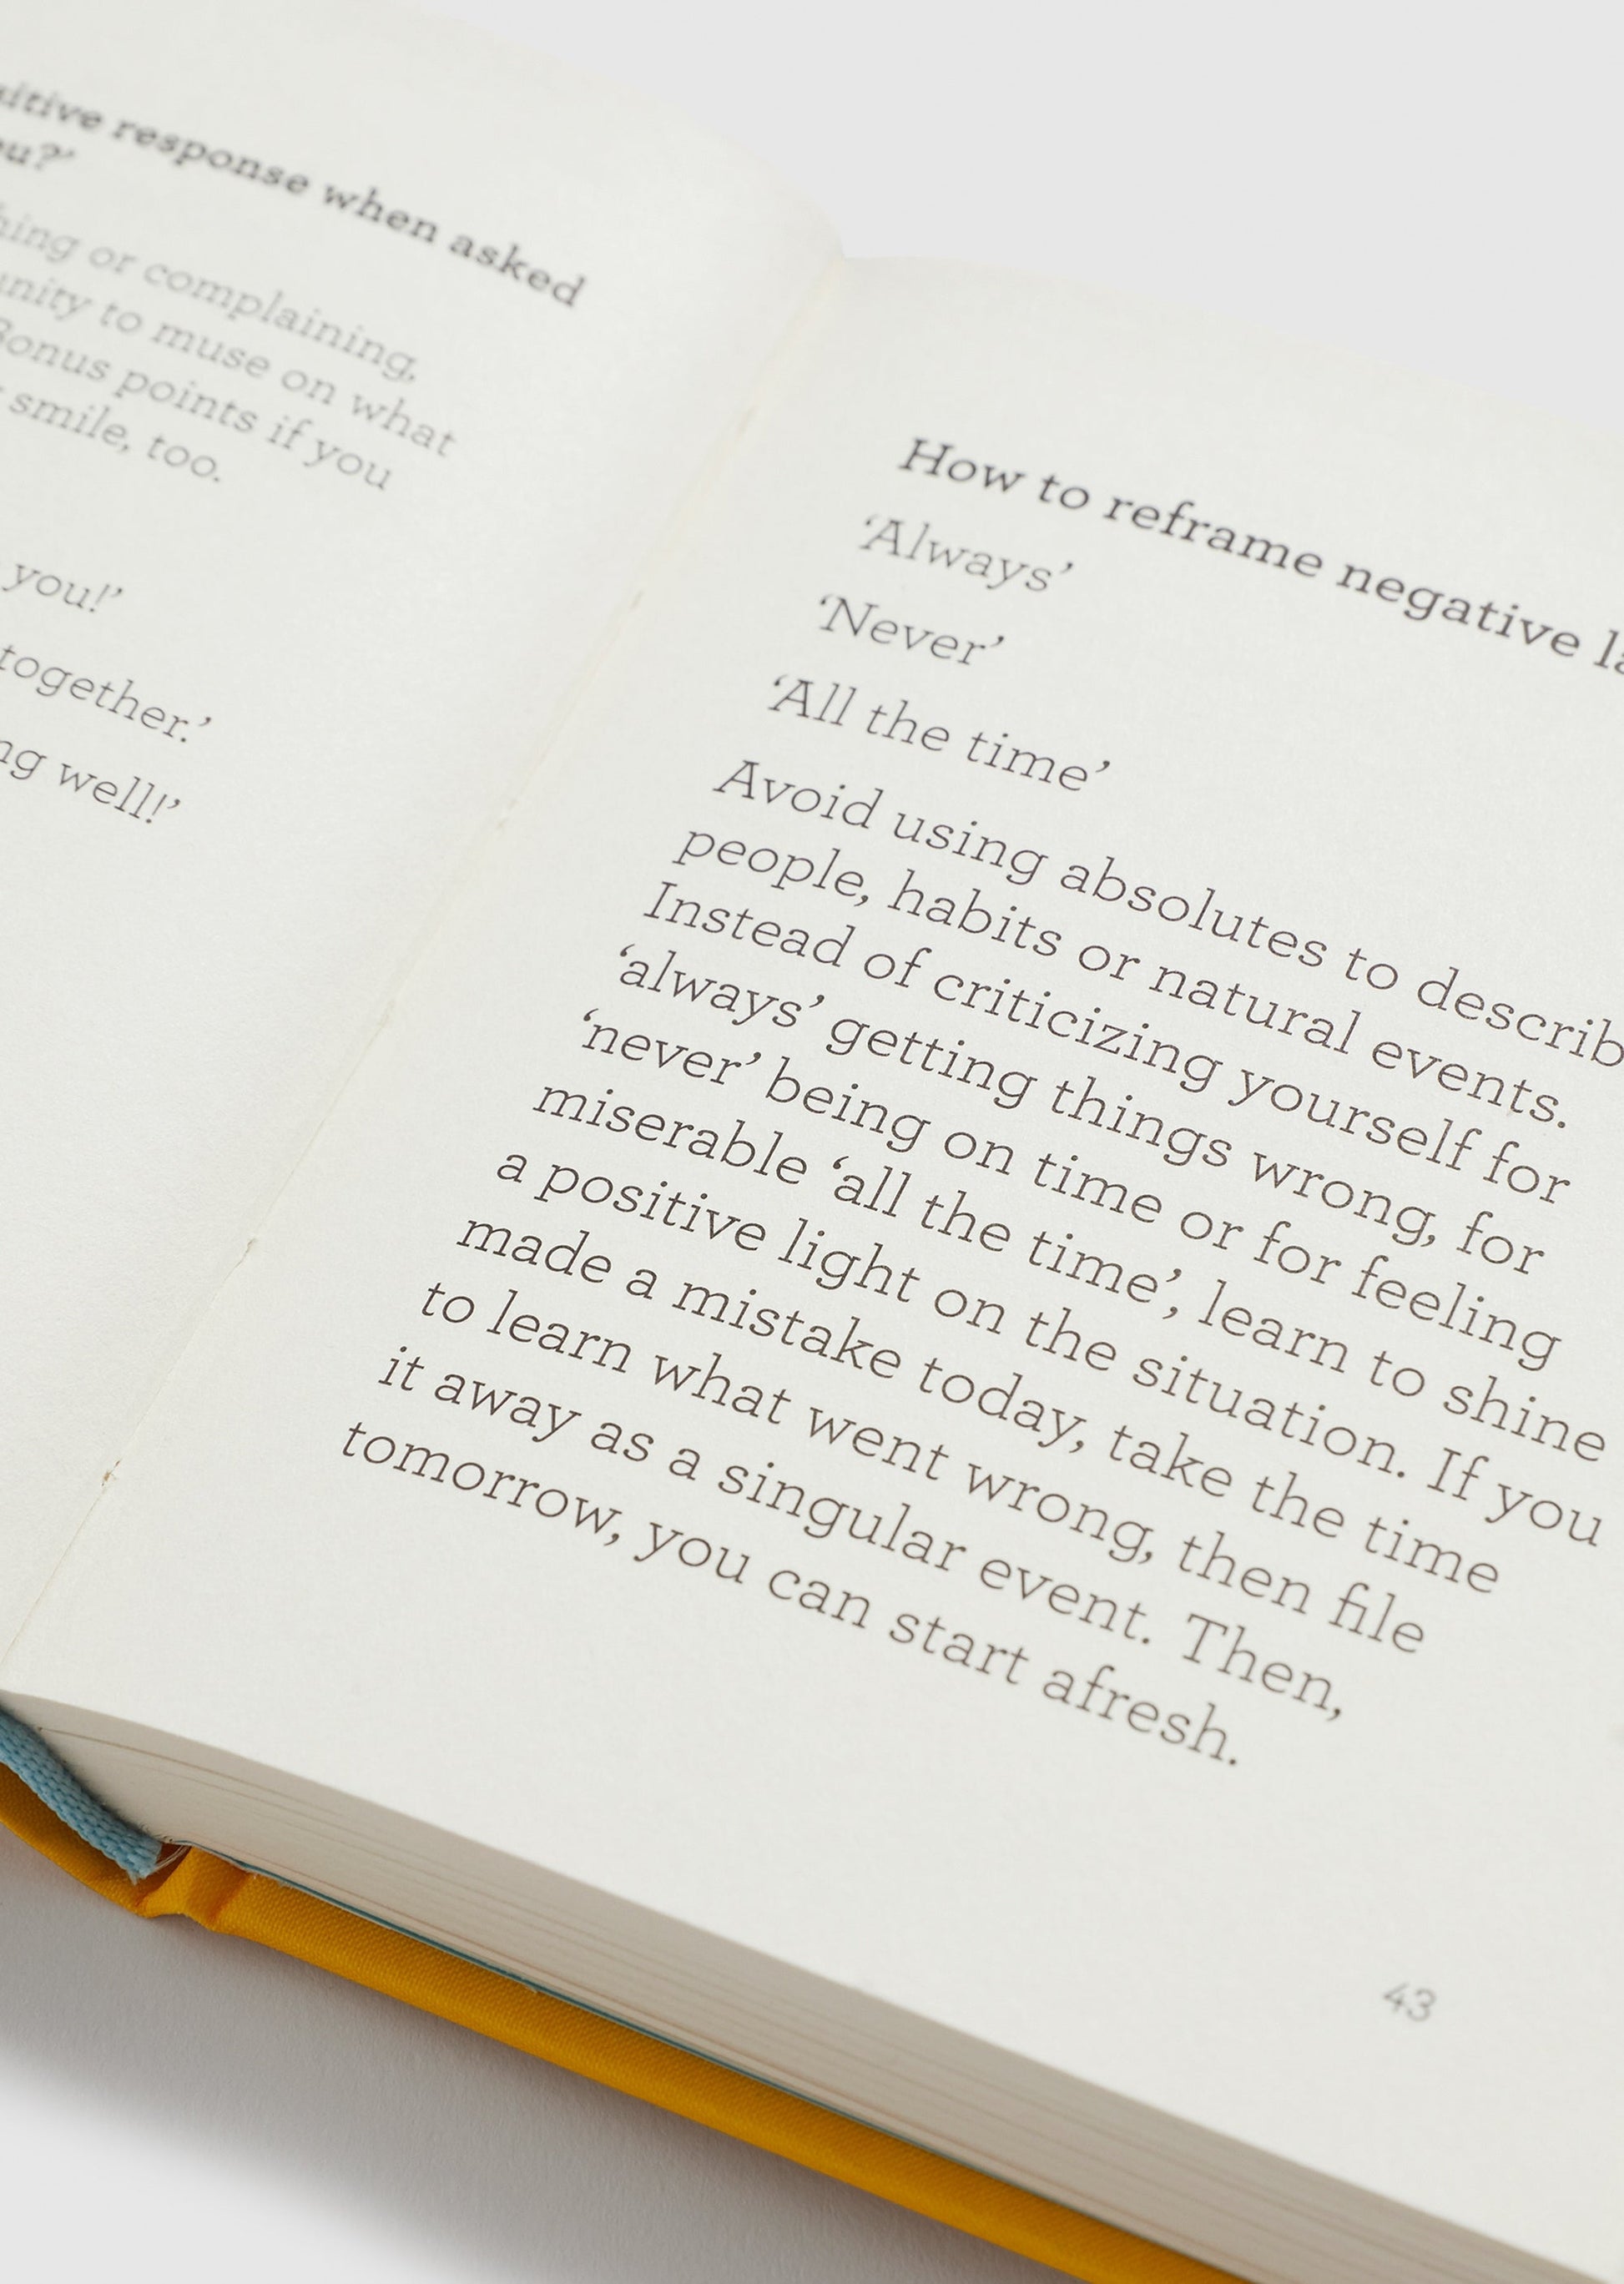 response when asked
or complaining,
to muse on what
points if you
smile, too.
you!’
together.’
well!’
How to reframe negative
‘Always’
‘Never’
‘All the time’
Avoid using absolutes to
people, habits or natural events.
Instead of criticizing yourself for
‘always’ getting things wrong, for
‘never’ being on time or for feeling
miserable ‘all the time’, learn to shine
a positive light on the situation. If you
made a mistake today, take the time
to learn what went wrong, then file
it away as a singular event. Then,
tomorrow, you can start afresh.
43